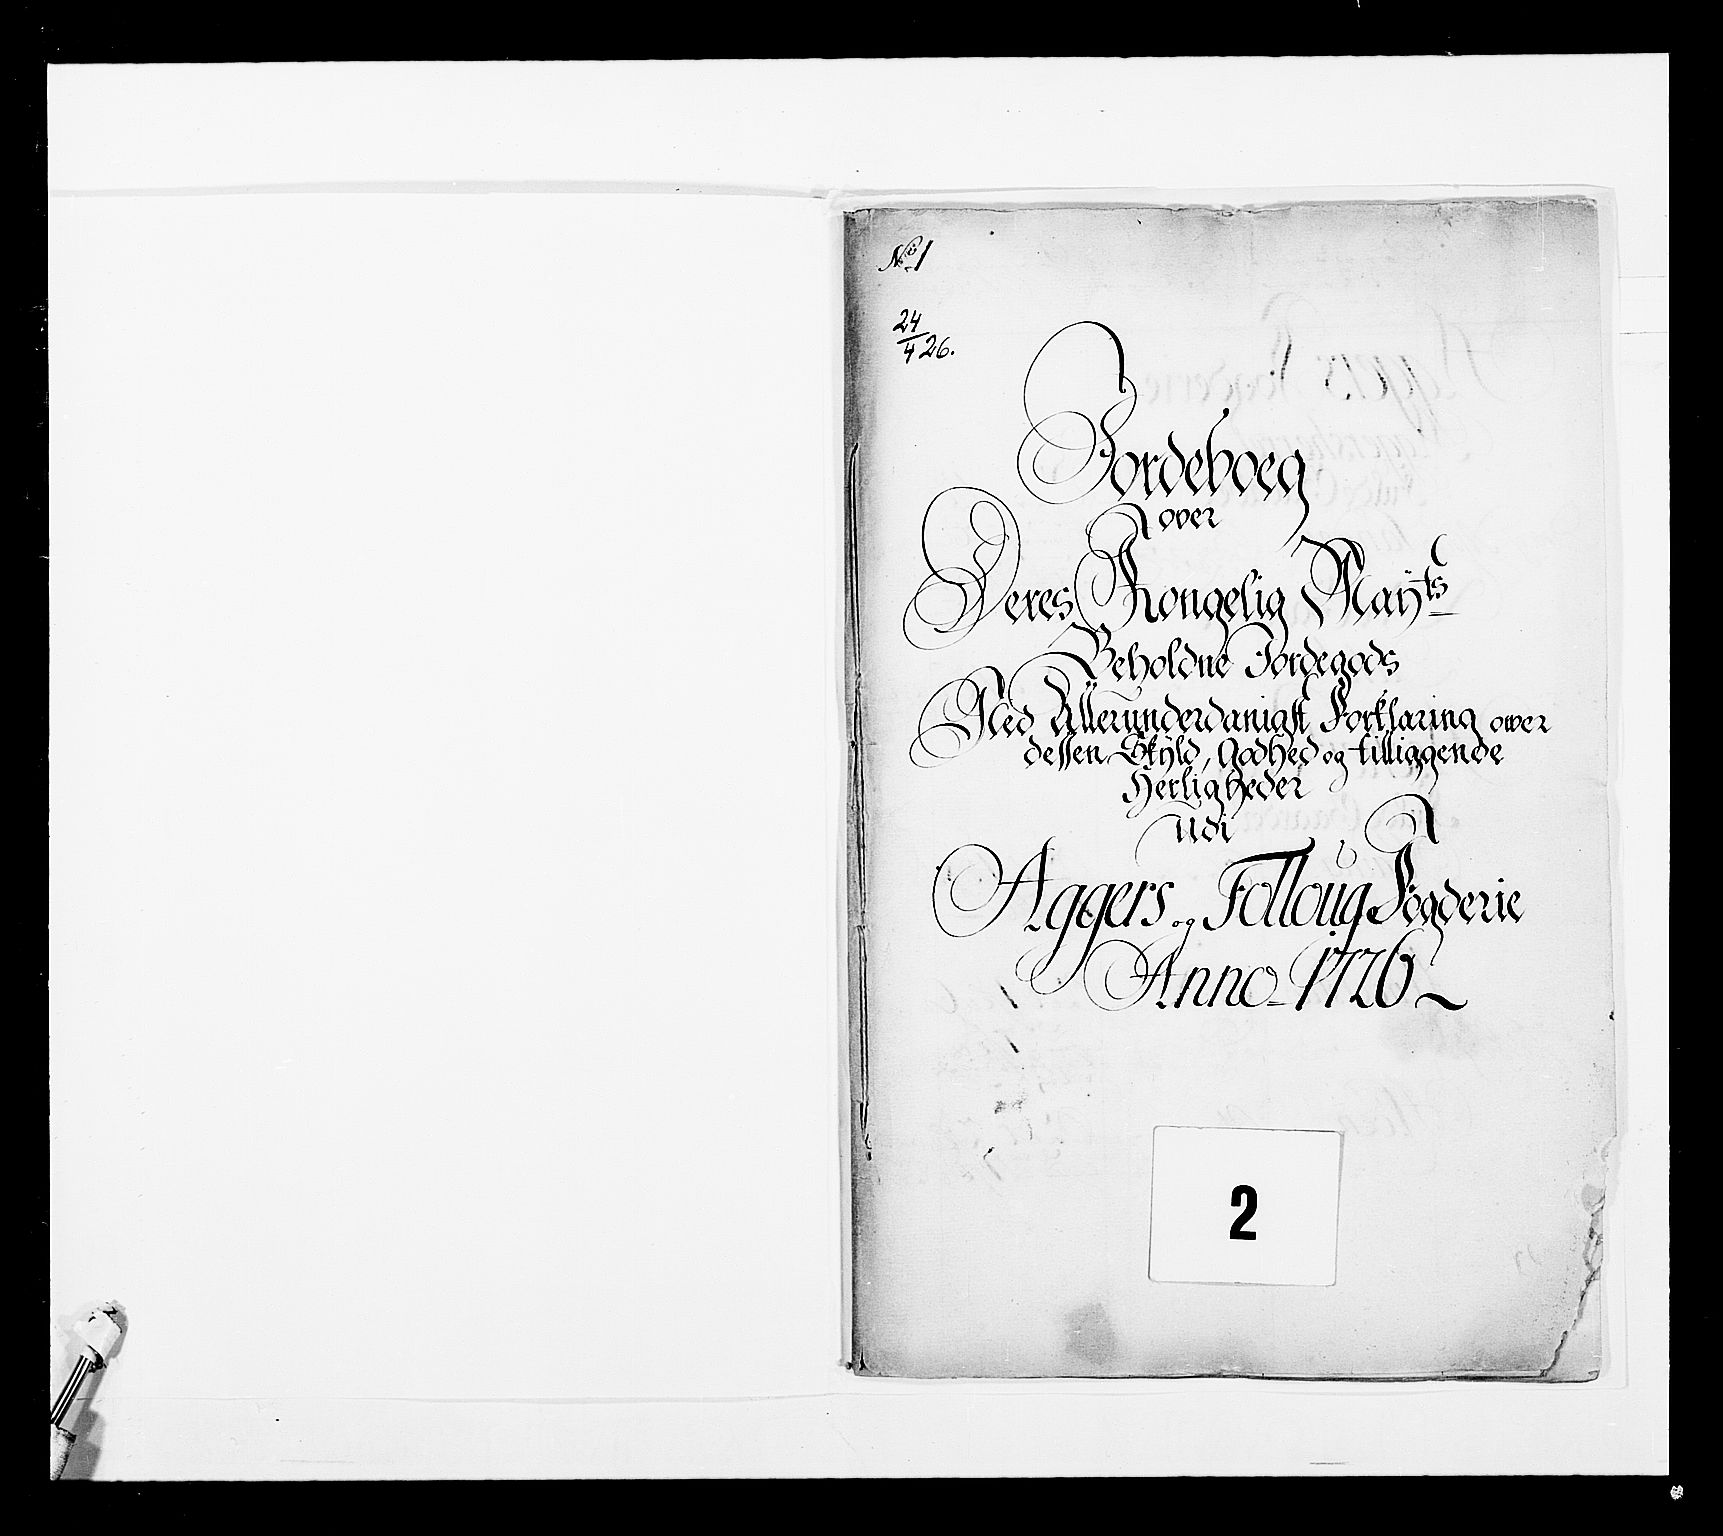 No 1
24/4 26.
Jordeboeg
over
Deres Kongelig Mayts
Beholdne Jordegods
Med Allerunderdanigst Forklaring over
dessen Skyld, Godhed og tilliggende
Herligheder
udi
Aggers og Folloug Fogderie
Anno 1726
2